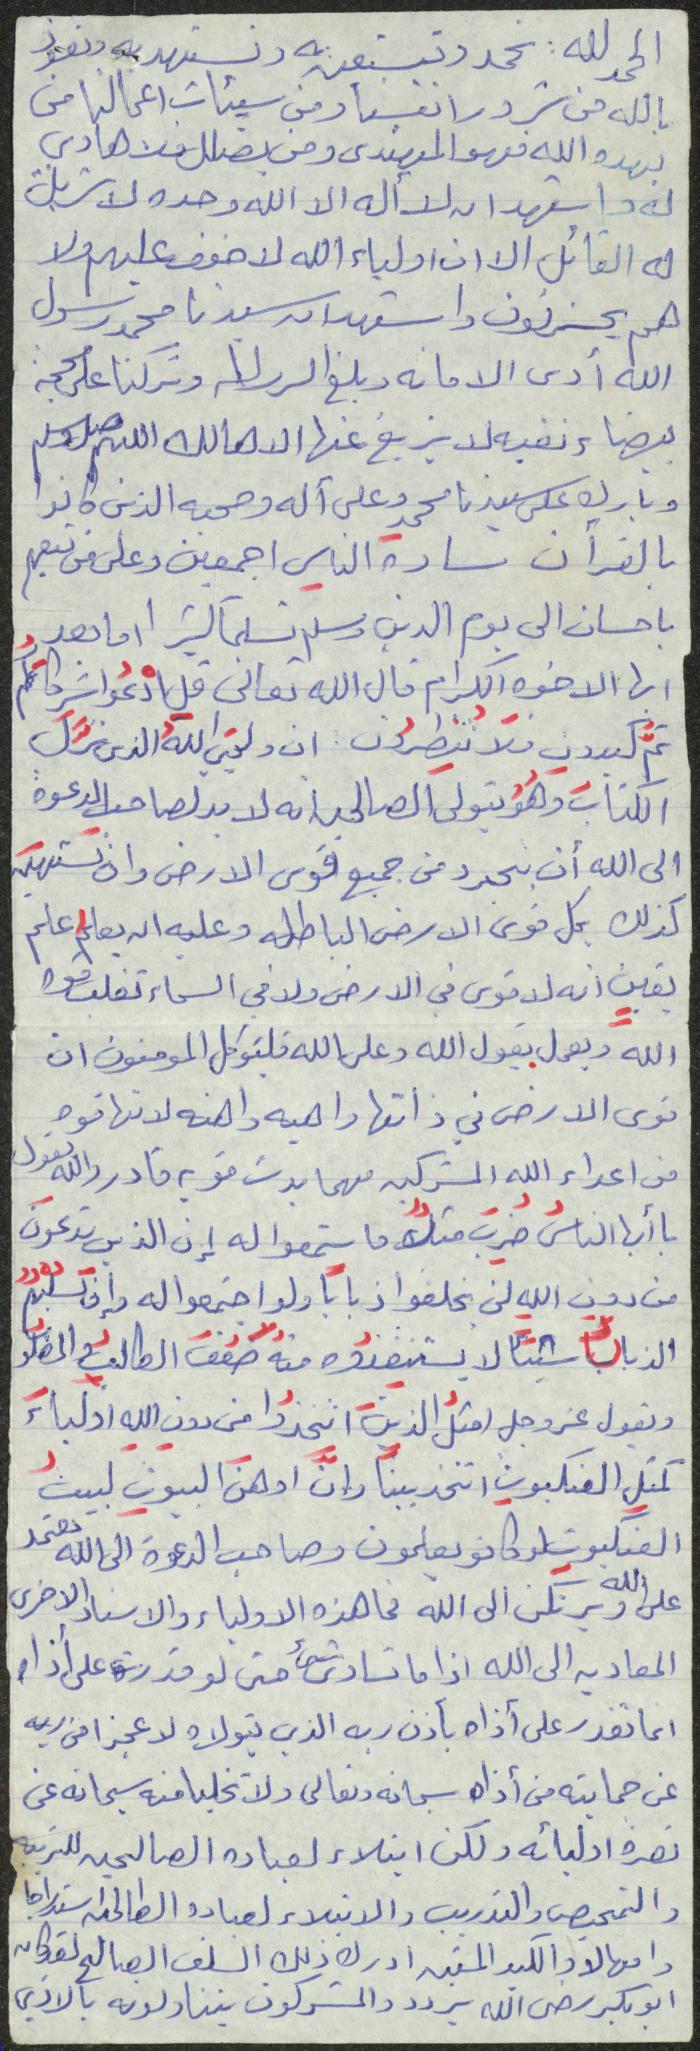 الحمد لله : نحمد ونستعين به ونستهد به ونعوذ
بالله من شرور انفسنا ومن سيئات اعمالنا من
يهده الله فهو المهتدى ومن يضلل فلا هادي
له واشهد ان لا أله الا الله وحده لا شريك
له القائل الا ان اولياء الله لا خوف عليهم ولا
هم يحزنون واشهد ان سيدنا محمد رسول
الله أدى الامانه وبلغ الرساله وتركنا على محجة
بيضاء نقيه لا يزيغ عنها الا هالك اللهم صل وسلم
وبارك على سيدنا محمد وعلى آله وصحبه الذين كانوا
بالقرآن سادة الناس اجمعين وعلى من تبعهم
باحسان الى يوم الدين وسلم تسليماً كثيرا اما بعد
ايها الاخوه الكرام قال الله تعالى قل ادْعُوا شركاءكم
ثمَّ كيدونِ فلَا تُنظِرُون : ان وليّيَ اللهُ الذى نَزَّلَ
الكتابَ وهُوَ يتولى الصالحين انه لا بد لصاحب الدعوة
الى الله أن يتجرد من جميع قوى الارض وان يَستهين
كذلك بكل قوى الارض الباطله وعليه ان يعلم علم
يقينٍ أنه لا قوى في الارض ولا في السماء تغلب قوة
اللهِ ويعمل بقول الله وعلى الله فليتوكل المومنون ان
قوى الارض في ذأتها واهيه واهنه لانها قوه
من اعداء الله المشركين مهما بدت قويه قادره والله يقول
يا أيها الناسُ ضُرِبَ مثلٌ فاستمعوا له إن الذين تدعونَ
من دونِ اللهِ لن يخلقوا ذباباً ولو اجتمعوا له وإن يسلبهُمُ
الذبابُ شيئاً لا يستنقذُوه منهُ ضَعُفَ الطالبُ والمطلوبُ
ويقول عز وجل مثلُ الذينَ اتخذُوا من دونِ اللهِ أولياءَ
كمثلِ العنكبوتِ اتخذت بيتاً وإنَّ اوهنَ البيوتِ لبيتُ
العنكبوتِ لو كانو يعلمون وصاحب الدعوة الى الله يعتمد
على الله ويرتكن الى الله فما هذه الاولياء والاسناد الاخرى
المعاديه الى الله اذا ما تساوى شيئاً حتى لو قدرت على أذاه
انما تقدر على أذاه بأذن ربه الذي يتولاه لا عجزا من ربه
عن حمايته من أذاه سبحانه وتعالى ولا تخليا منه سبحانه عن
نصرة اوليائه ولكن ابتلاء لعباده الصالحين للتربيه
والتمحيص والتدريب والابتلاء لعباده الطالحين استدراجا
وامهالا والكيد المتين ادرك ذلك السلف الصالح لقد كان
ابو بكر رضى الله يردد والمشركون يتناولونه بالاذي